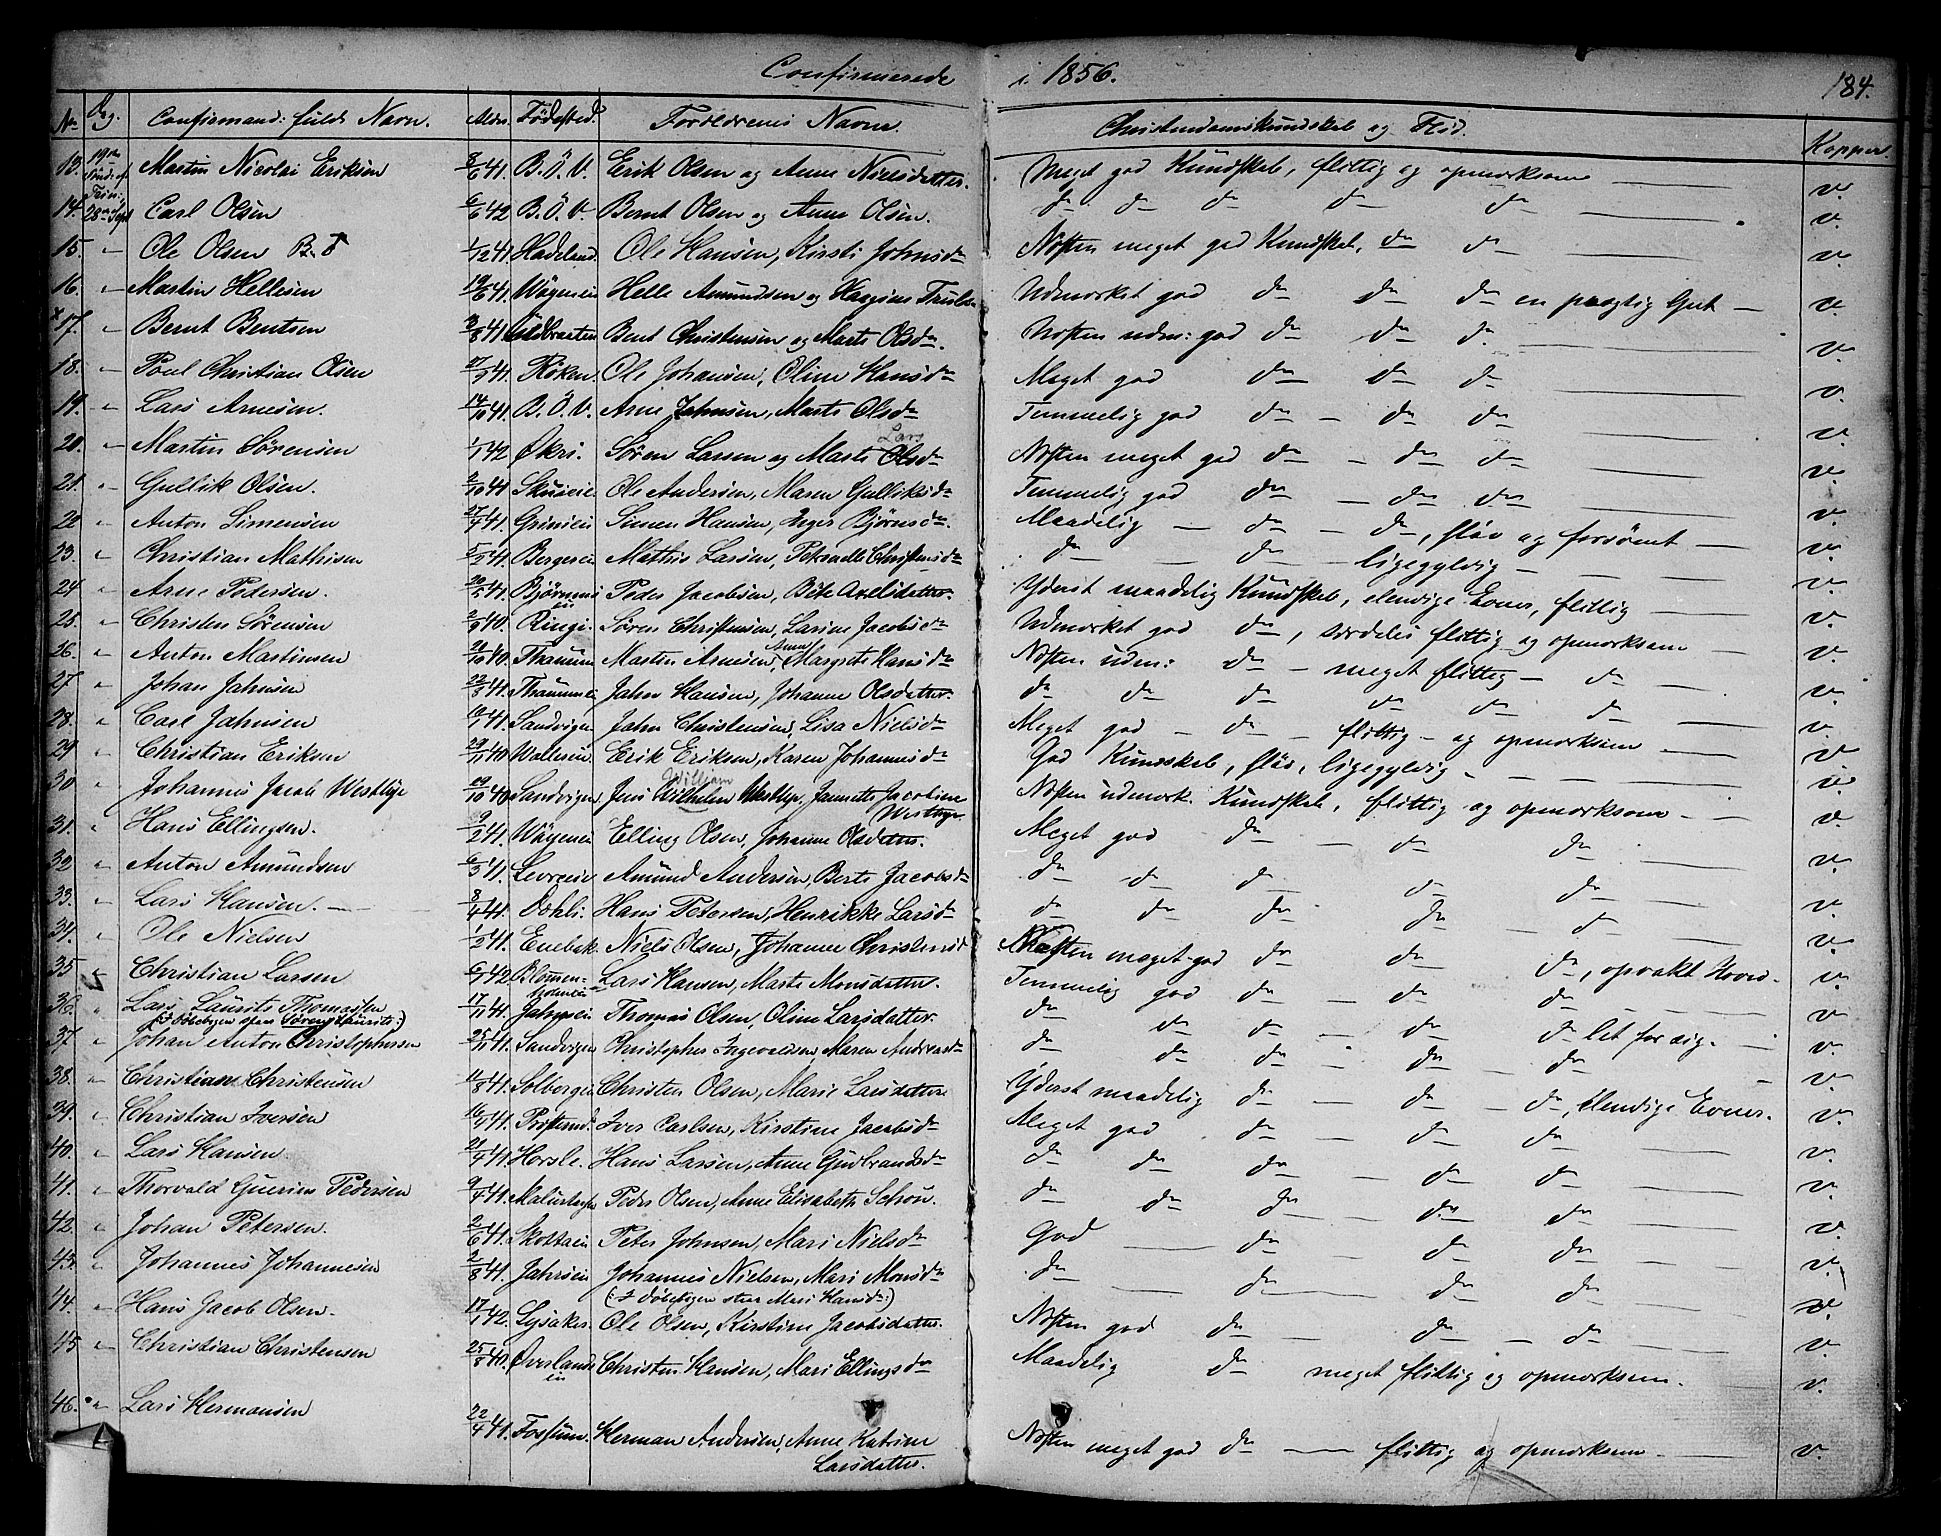 Confirmerede i 1856. 184.
No Dag. Confirmand: fulde Navn. Aldr. Fødested. Forældrenes Navne. Christendomskundskab og Flid. Kopper.
13. 19de Martin Nicolai Eriksen 8/6 41. B.Ö.V. Erik Olsen og Anne Nielsdatter. Meget god Kundskab, flittig og opmærksom v.
14. 28de Sept Carl Olsen 6/6 42 B.Ö.V. Bernt Olsen og Anne Olsen. do do do do do v.
15. " Ole Olsen 1/12 41. Hadeland. Ole Hansen, Kirsti Johnsdr Næsten meget god Kundskab, do do v.
16. " Martin Hellesen 19/6 41. Helle Amundsen og Udmærket god do do do en prægtig Gut v.
17. " Bernt Bentsen 3/8 41 Bent Christensen og Marte Olsdr. Næsten udm: god do do do v.
18. " Poul Christian Olsen 27/9 41. Røken. Ole Johansen, Oline Hansdr Meget god do do do v.
19. " Lars Arnesen. 14/10 41. B.Ö.V. Arne Johnsen, Marte Olsdr Temmelig god do do do v.
20. " Martin Sørensen 1/1 42 Økri. Søren Larsen og Marte Lars Olsdr Næsten meget god do do do v.
21. " Gullik Olsen. 2/10 41 Ole Andersen, Maren Gulliksdr Temmelig god do do do v.
22 " Anton Simensen 27/4 41. Grinieie Simen Hansen, Inger Bjørnsdr. Maadelig do do, sløv og forsømt v.
23. " Christian Mathisen 5/2 41. Bergereie Mathis Larsen, Petronelle Christensdr do do ligegyldig v.
24 " Arne Pedersen. 20/5 41. Peder Jacobsen, Axelsdatter. Yderst maadelig Kundskab, elendige Evner, flittig v.
25. " Christen Sørensen 2/9 40. Ringi. Søren Christensen, Larine Jacobsdr Udmærket god do, særdeles flittig og opmærksom v.
26. " Anton Martinsen /10 40. Martin Arnesen, Anne Margrete Hansdr Næsten udm: do meget flittig do v.
27. " Johan Jahnsen 22/3 41. Jahn Hansen, Johanne Olsdatter. do do do do do do v.
28. " Carl Jahnsen /1 41. Sandvigen Jahn Christensen, Lisa Nielsdr Meget god do flittig og opmærksom v.
29 " Christian Eriksen 29/11 40 Erik Eriksen, Karen Johannesdr God Kundskab, sløv, ligegyldig v
30 " Johannes Jacob Westbye 19/10 40 Sandvigen, Jens Wilhelm William Westbye, Jannette Jacobine Westbye Næsten udmærk. Kundskab, flittig og opmærksom v.
31. " Hans Ellingsen. 9/2 41. Elling Olsen, Johanne Olsdatter. Meget god do do do v.
32 " Anton Amundsen 6/3 41. Amund Andersen, Berte Jacobsdr do do do do do v.
33. " Lars Hansen. 8/4 41. Hans Petersen, Henrikke Larsdr do do do do do v.
34. " Ole Nielsen 1/2 41. Enebak. Niels Olsen, Johanne Christensd Næsten meget god do do do, opvakt Hoved. v.
35 " Christian Larsen 6/1 42 Lars Hansen, Marte Monsdatter. Temmelig god do do do v.
36. " Lars Laurits Thomassen 17/11 41. Thomas Olsen, Oline Larsdatter do do do do do let for sig. v.
(: i Døbebogen Sørens Laurits :)
37 " Johan Anton Christophersen 25/11 41. Sandvigen Christopher Ingevaldsen, Maren Andreasdr do do do do do v.
38. " Christian Christensen 11/8 41. Solbergeie Christen Olsen, Marie Larsdatter Yderst maadelig do do do, elendige Evner. v.
39. " Christian Iversen 16/5 41. Iver Carlsen, Kirstine Jacobsdr Meget god do do do v.
40. " Lars Hansen. 21/4 41. Horsle. Hans Larsen, Anne Gudbrandsdr do do do do do v.
41. " Thorvald Guerin Pedersen 9/4 41. Peder Olsen, Anne Elisabeth Schou. do do do do do v.
42. " Johan Petersen. 2/6 41. Skottaeie Peter Johnsen, Mari Nielsdr God do do do v.
43. " Johannes Johannesen 2/8 41. Johannes Nielsen, Mari Monsdr do do do do v.
(: I Døbebogen staar Mari Hansdr :)
44. " Hans Jacob Olsen. 17/1 42. Lysaker Ole Olsen, Kirstine Jacobsdatter. Næsten god do do do v.
45 " Christian Christensen 25/8 40. Øverlands eie Christen Hansen, Mari Ellingsdr Maadelig do meget flittig og opmærksom. v.
46. " Lars Hermansen 22/4 41. Fossum. Herman Andersen, Anne Katrine Larsdatter. Næsten meget god do flittig og opmærksom v.